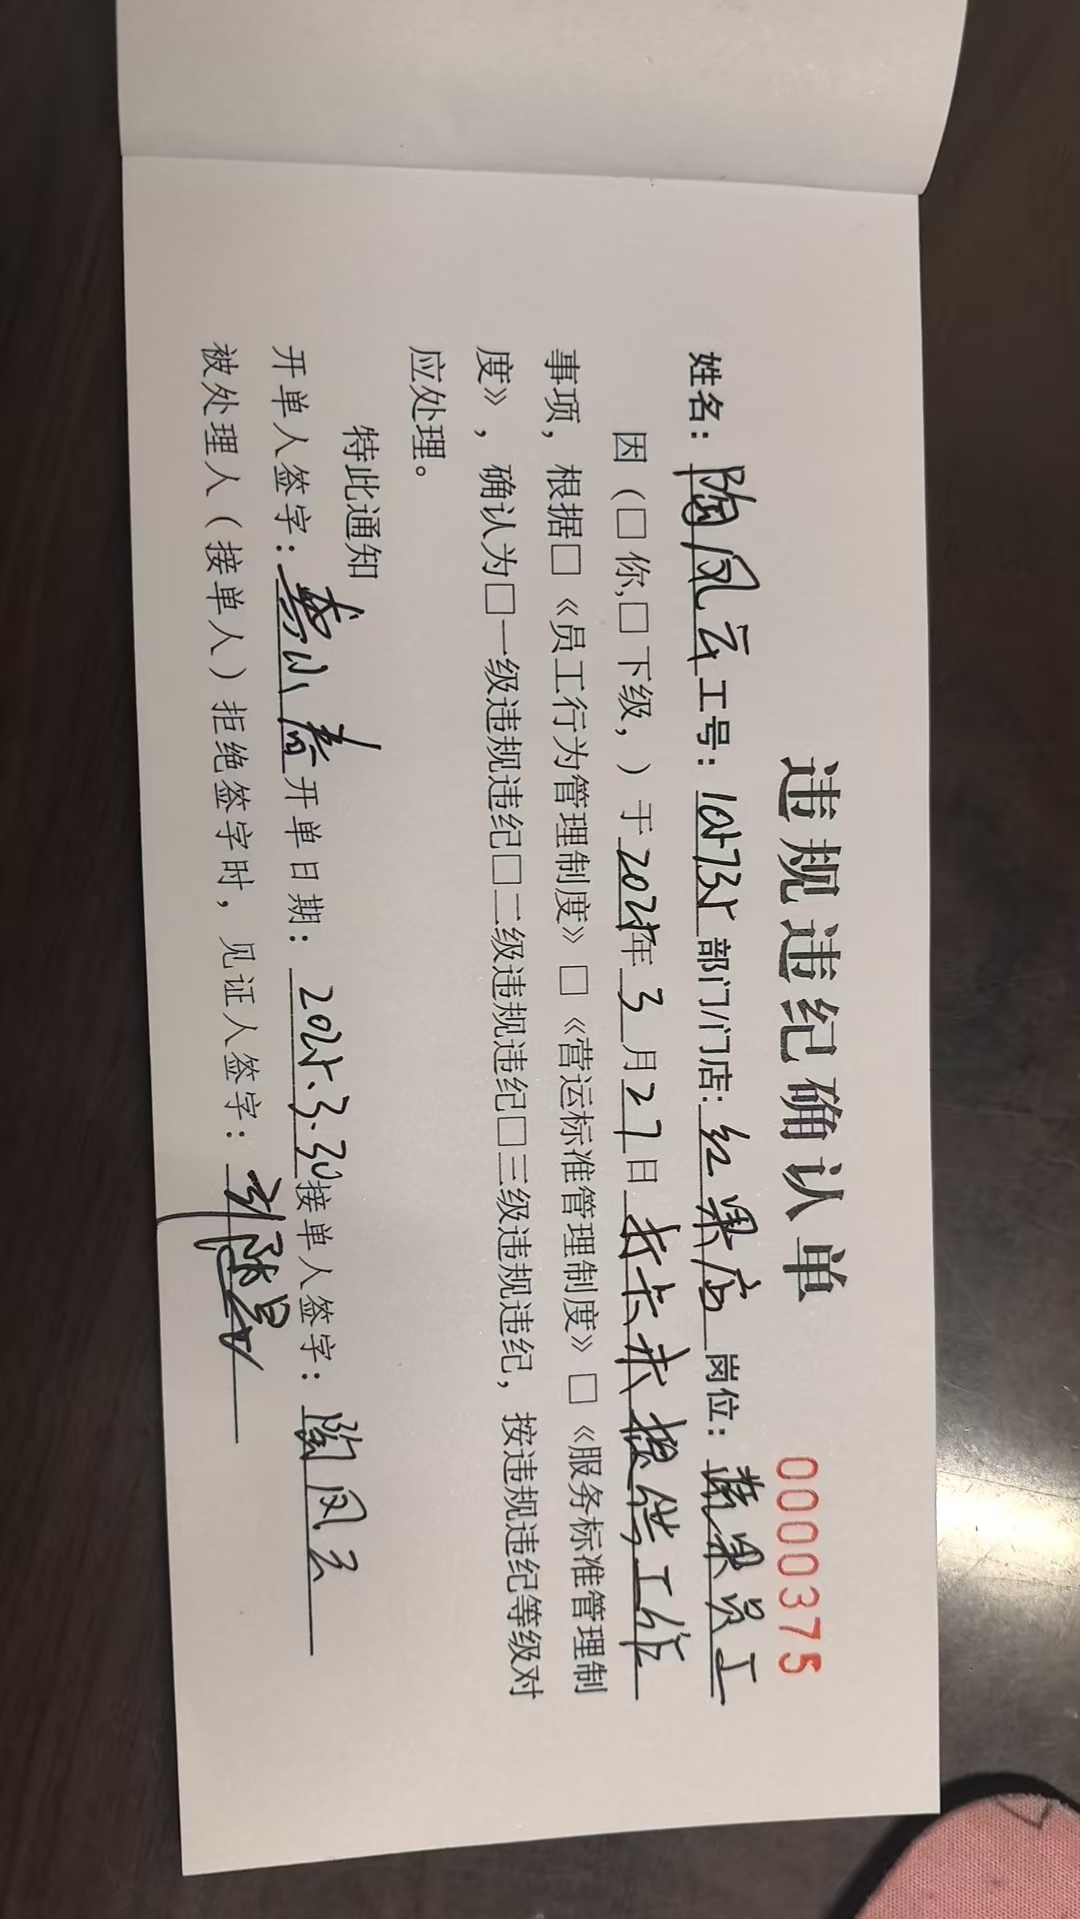 违规违纪确认单 0000375
姓名：陶凤云工号：1025735部门/门店：红果店 岗位：蔬果员工
因（□你,□下级，）于2025年3月27日 打卡未提供工作
事项，根据□《员工行为管理制度》□《营运标准管理制度》□《服务标准管理制
度》，确认为□一级违规违纪□二级违规违纪□三级违规违纪，按违规违纪等级对
应处理。
特此通知
开单人签字：小春开单日期：2025.3.30接单人签字：陶凤云
被处理人（接单人）拒绝签字时，见证人签字：